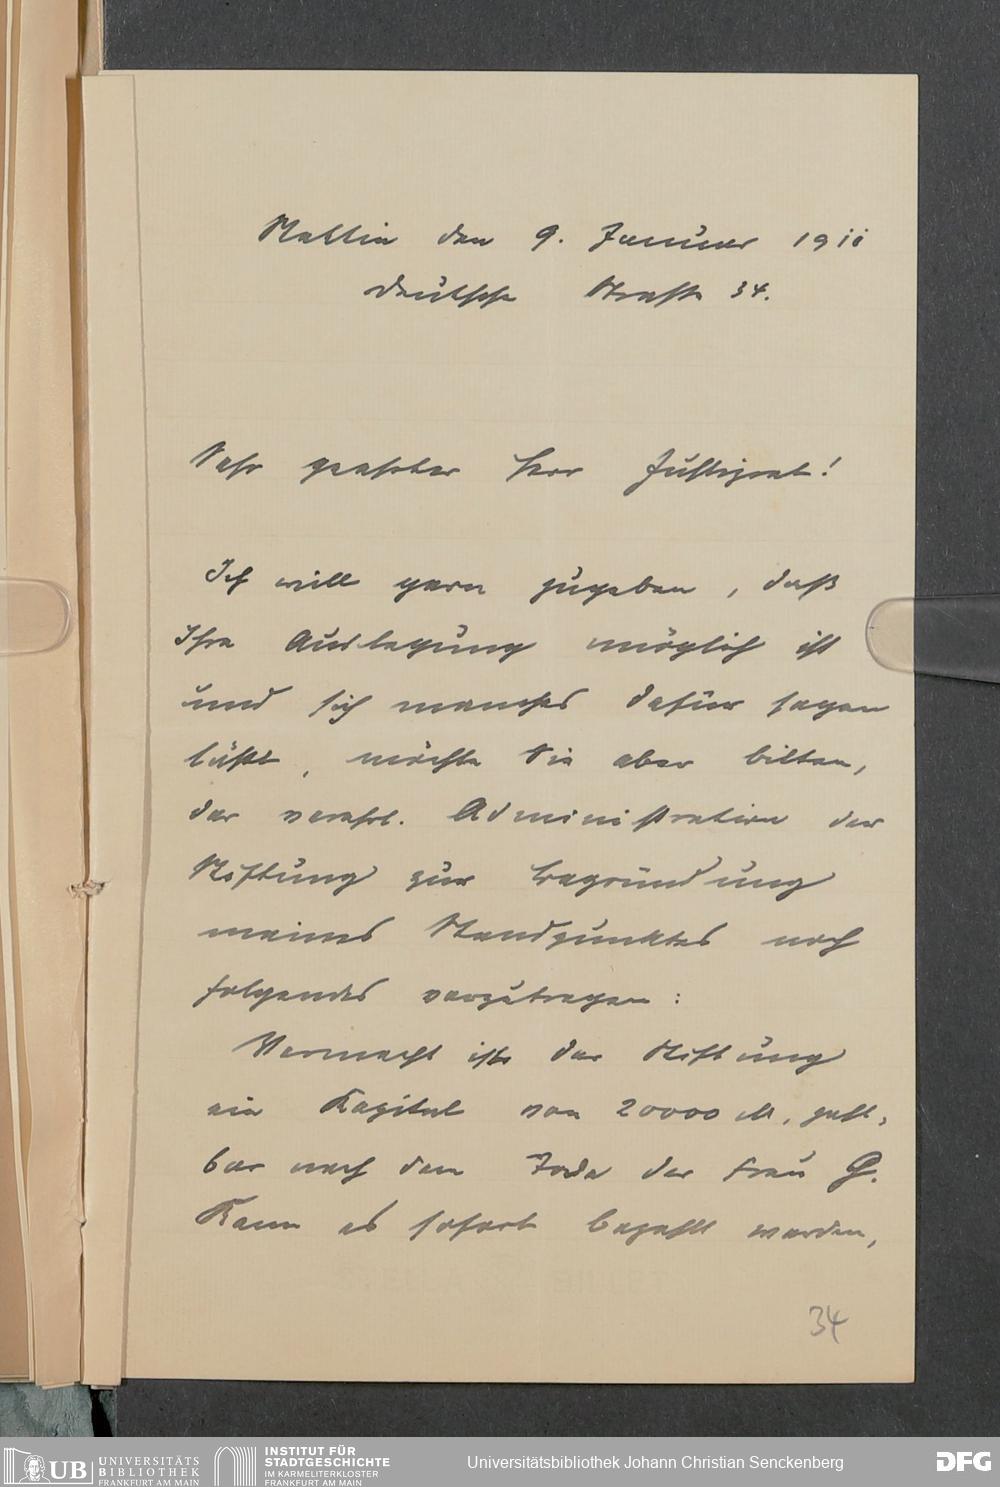 Stettin den 9. Januar 1911
Deutsche Straße 34.
Sehr geehrter Herr Justizrat!
Ich will gern zugeben, daß
Ihre Auslegung möglich ist
und sich manches dafür sagen
läßt, möchte Sie aber bitten,
der verehrl. Administration der
Stiftung zur Begründung
meines Standpunktes noch
folgendes vorzutragen:
Vermacht ist der Stiftung
ein Kapital von 20000 M, zahl-
bar nach dem Tode der Frau G.
Kann es sofort bezahlt werden,
34
UB UNIVERSITÄTS
BIBLIOTHEK
FRANKFURT AM MAIN
INSTITUT FÜR
STADTGESCHICHTE
IM KARMELITERKLOSTER
FRANKFURT AM MAIN
Universitätsbibliothek Johann Christian Senckenberg
DFG